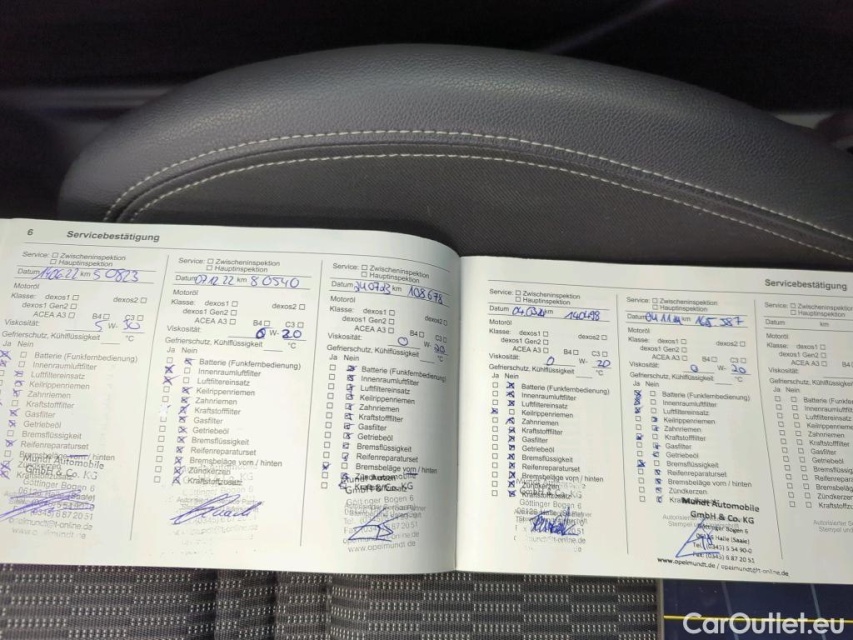 6 Servicebestätigung
Service: ☐ Zwischeninspektion
☐ Hauptinspektion
Datum 14.06.22 km 50823
Motoröl
Klasse: dexos1 ☐ dexos2 ☐
dexos1 Gen2 ☐
ACEA A3 ☐ B4 ☐ C3 ☐
Viskosität: 5 W- 30
Gefrierschutz, Kühlflüssigkeit °C
Ja Nein
Batterie (Funkfernbedienung)
Innenraumluftfilter
Luftfiltereinsatz
Keilrippenriemen
Zahnriemen
Kraftstofffilter
Gasfilter
Getriebeöl
Bremsflüssigkeit
Reifenreparaturset
Bremsbeläge vorn / hinten
Mundt Automobile
GmbH & Co. KG
Service: ☐ Zwischeninspektion
☐ Hauptinspektion
Datum 07.12.22 km 80540
Motoröl
Klasse: dexos1 ☐ dexos2 ☐
dexos1 Gen2 ☐
ACEA A3 ☐ B4 ☐ C3 ☐
Viskosität: 0 W- 20
Gefrierschutz, Kühlflüssigkeit °C
Ja Nein
Batterie (Funkfernbedienung)
Innenraumluftfilter
Luftfiltereinsatz
Keilrippenriemen
Zahnriemen
Kraftstofffilter
Gasfilter
Getriebeöl
Bremsflüssigkeit
Reifenreparaturset
Bremsbeläge vorn / hinten
Zündkerzen
Kraftstoffzusatz
Service: ☐ Zwischeninspektion
☐ Hauptinspektion
Datum 24.07.23 km 108678
Motoröl
Klasse: dexos1 ☐ dexos2 ☐
dexos1 Gen2 ☐
ACEA A3 ☐ B4 ☐ C3 ☐
Viskosität: 0 W- 20
Gefrierschutz, Kühlflüssigkeit °C
Ja Nein
Batterie (Funkfernbedienung)
Innenraumluftfilter
Luftfiltereinsatz
Keilrippenriemen
Zahnriemen
Kraftstofffilter
Gasfilter
Getriebeöl
Bremsflüssigkeit
Reifenreparaturset
Bremsbeläge vorn / hinten
GmbH & Co. KG
Göttinger Bogen 6
www.opelmundt.de
Servicebestätigung
Service: ☐ Zwischeninspektion
☐ Hauptinspektion
Datum
Motoröl
Klasse: dexos1 ☐ dexos2 ☐
dexos1 Gen2 ☐
ACEA A3 ☐ B4 ☐ C3 ☐
Viskosität: 0 W- 20
Gefrierschutz, Kühlflüssigkeit °C
Ja Nein
Batterie (Funkfernbedienung)
Innenraumluftfilter
Luftfiltereinsatz
Keilrippenriemen
Zahnriemen
Kraftstofffilter
Gasfilter
Getriebeöl
Bremsflüssigkeit
Reifenreparaturset
Bremsbeläge vorn / hinten
Zündkerzen
Göttinger Bogen 6
Service: ☐ Zwischeninspektion
☐ Hauptinspektion
Datum 04.11.24 165 387
Motoröl
Klasse: dexos1 ☐ dexos2 ☐
dexos1 Gen2 ☐
ACEA A3 ☐ B4 ☐ C3 ☐
Viskosität: 0 W- 20
Gefrierschutz, Kühlflüssigkeit °C
Ja Nein
Batterie (Funkfernbedienung)
Innenraumluftfilter
Luftfiltereinsatz
Keilrippenriemen
Zahnriemen
Kraftstofffilter
Gasfilter
Getriebeöl
Bremsflüssigkeit
Reifenreparaturset
Bremsbeläge vorn / hinten
Zündkerzen
Mundt Automobile
GmbH & Co. KG
Göttinger Bogen 6
Halle (Saale)
www.opelmundt.de / opelmundt@t-online.de
Service: ☐ Zwischeninspektion
☐ Hauptinspektion
Datum km
Motoröl
Klasse: dexos1 ☐
dexos1 Gen2 ☐
ACEA A3 ☐
Viskosität:
Gefrierschutz, Kühlflüssigkeit
Ja Nein
Innenraumluftfilter
Luftfiltereinsatz
Keilrippenriemen
Zahnriemen
Kraftstofffilter
Gasfilter
Getriebeöl
Bremsflüssigkeit
CarOutlet.eu